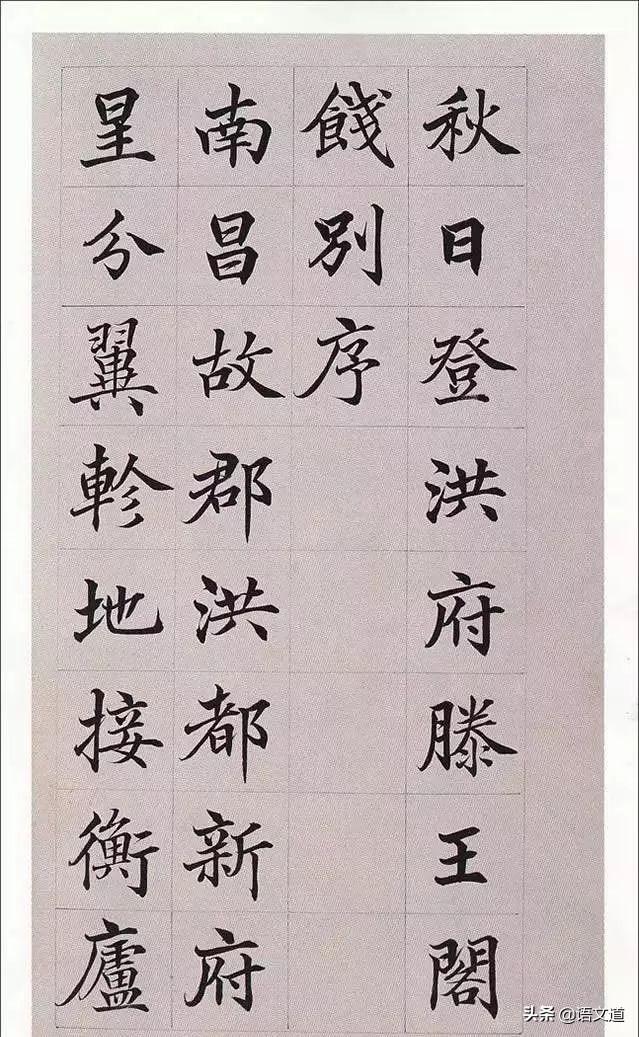 秋日登洪府滕王閣
餞別序
南昌故郡洪都新府
星分翼軫地接衡廬
头条 @语文道